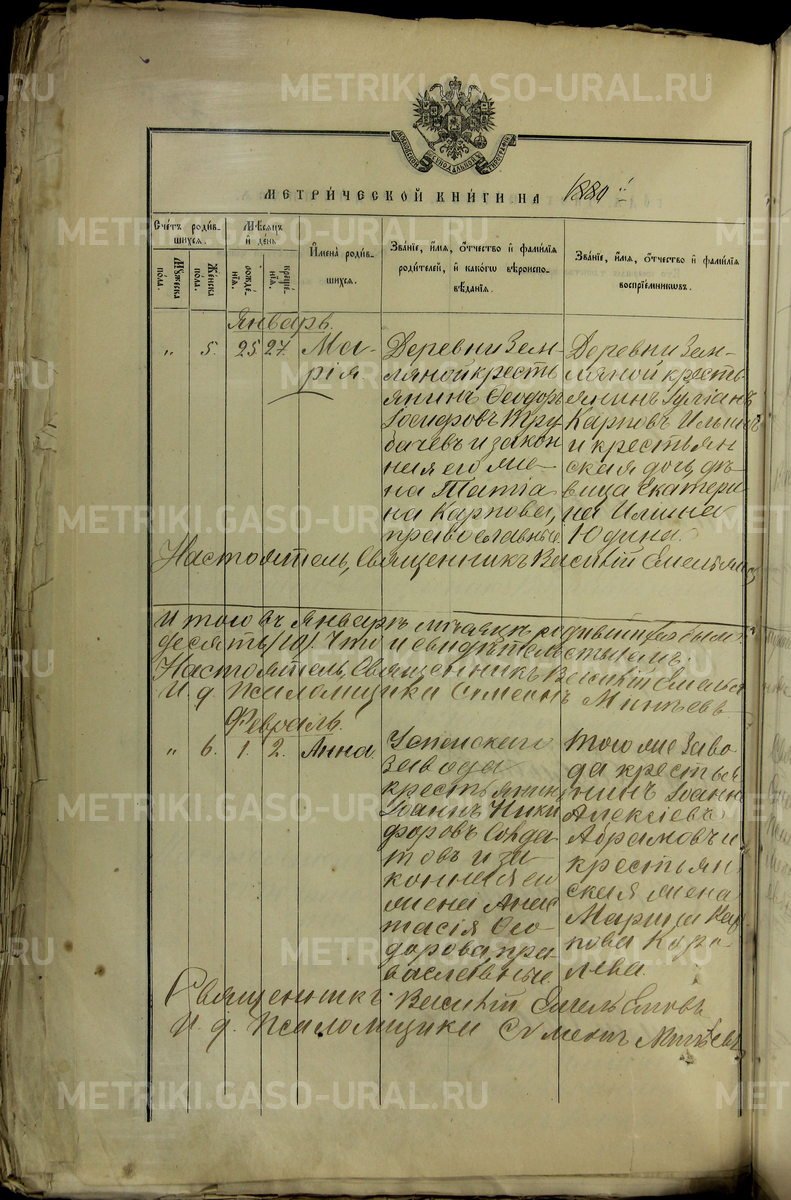 METRIKI.GASO-URAL.RU
МЕТРИ́ЧЕСКОЙ КНИ́ГИ НА 1880
Сче́тъ роди́в-
шихся.
Му́жеска
по́ла.
Же́нска
по́ла.
Мѣ́сяцъ
и҆ де́нь
рожде́-
нїя.
креще́-
нїя.
И҆мена̀ роди́в-
шихся.
Зва́нїе, и҆́мя, ѻ҆́тчество и҆ фами́лїя
роди́телей, и҆ како́гѡ вѣроиспо-
вѣ́данїя.
Зва́нїе, и҆́мя, ѻ҆́тчество и҆ фами́лїя
воспрїе́мникωвъ.
Январь.
" 5. 25 27. Ма-
рія
Деревни Зем-
ляной кресть
янинъ Ѳеодоръ
Іосифовъ Тру
бачевъ и закон
ная его же-
на Татіа
на Карпова,
православные.
Деревни Зем-
ляной кресть-
янинъ
Карповъ
и крестьян
ская дочь дѣ-
вица Екатери
на Ильина
Юдина.
Настоятель, Священникъ Василій Емельяновъ
Итого въ Январѣ мѣсяцѣ родившихся было
десять (10). Что и свидѣтельствуемъ:
Настоятель, Священникъ Василій Емельян
И. д. Псаломщика Симеонъ Митѣевъ
Февраль.
" 6. 1. 2. Анна.
Успенскаго
завода
крестьянинъ
Іоаннъ Ники
форовъ Солда
товъ и за
конная его
жена Анас
тасія Ѳео
дорова, пра
вославные
Того же Заво
да крестья
нинъ Іоаннъ
Алексіевъ
Абрамовъ и
крестьян
ская жена
Марина Кар
пова Коро-
лева.
Священникъ Василій Емельяновъ
И. д. Псаломщика Симеонъ Митѣевъ